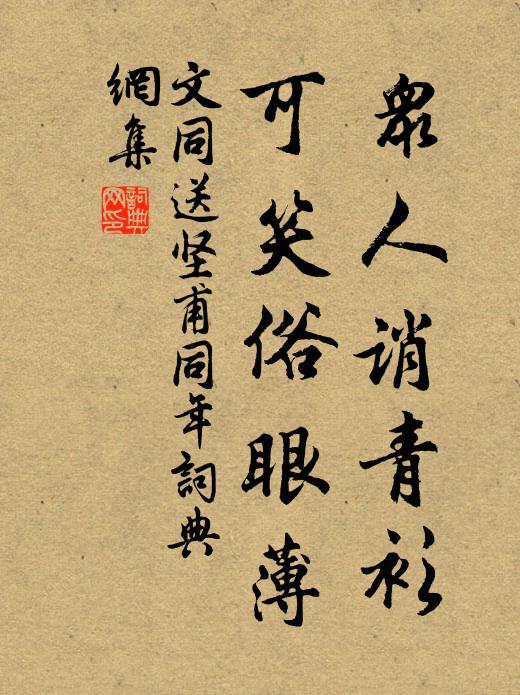 衆人誚青衫
可笑俗眼薄
文同送坚甫同年詞典
網集
詞典網印